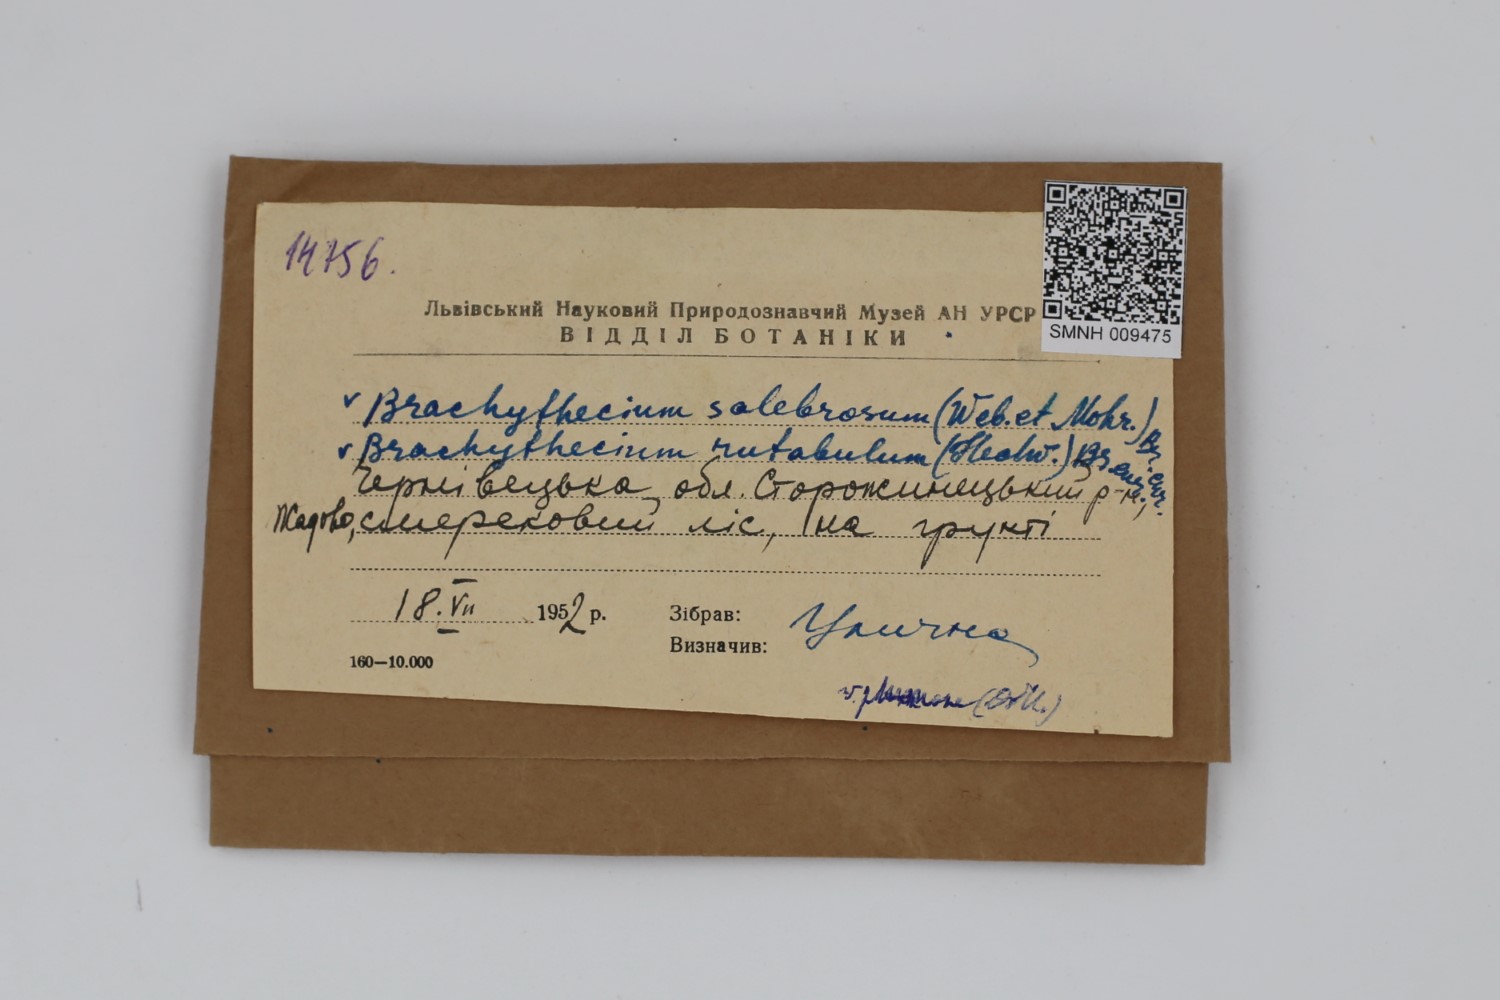 14756.
Львівський Науковий Природознавчий Музей АН УРСР
ВІДДІЛ БОТАНІКИ
SMNH 009475
v Brachythecium salebrosum (Web. et Mohr.)
v Brachythecium rutabulum (Hedw.) Br. eur.
Чернівецька обл. Сторожинецький р-н,
Жадово, смерековий ліс, на грунті
18.VII 1952 р.
Зібрав: Улична
Визначив:
160—10.000